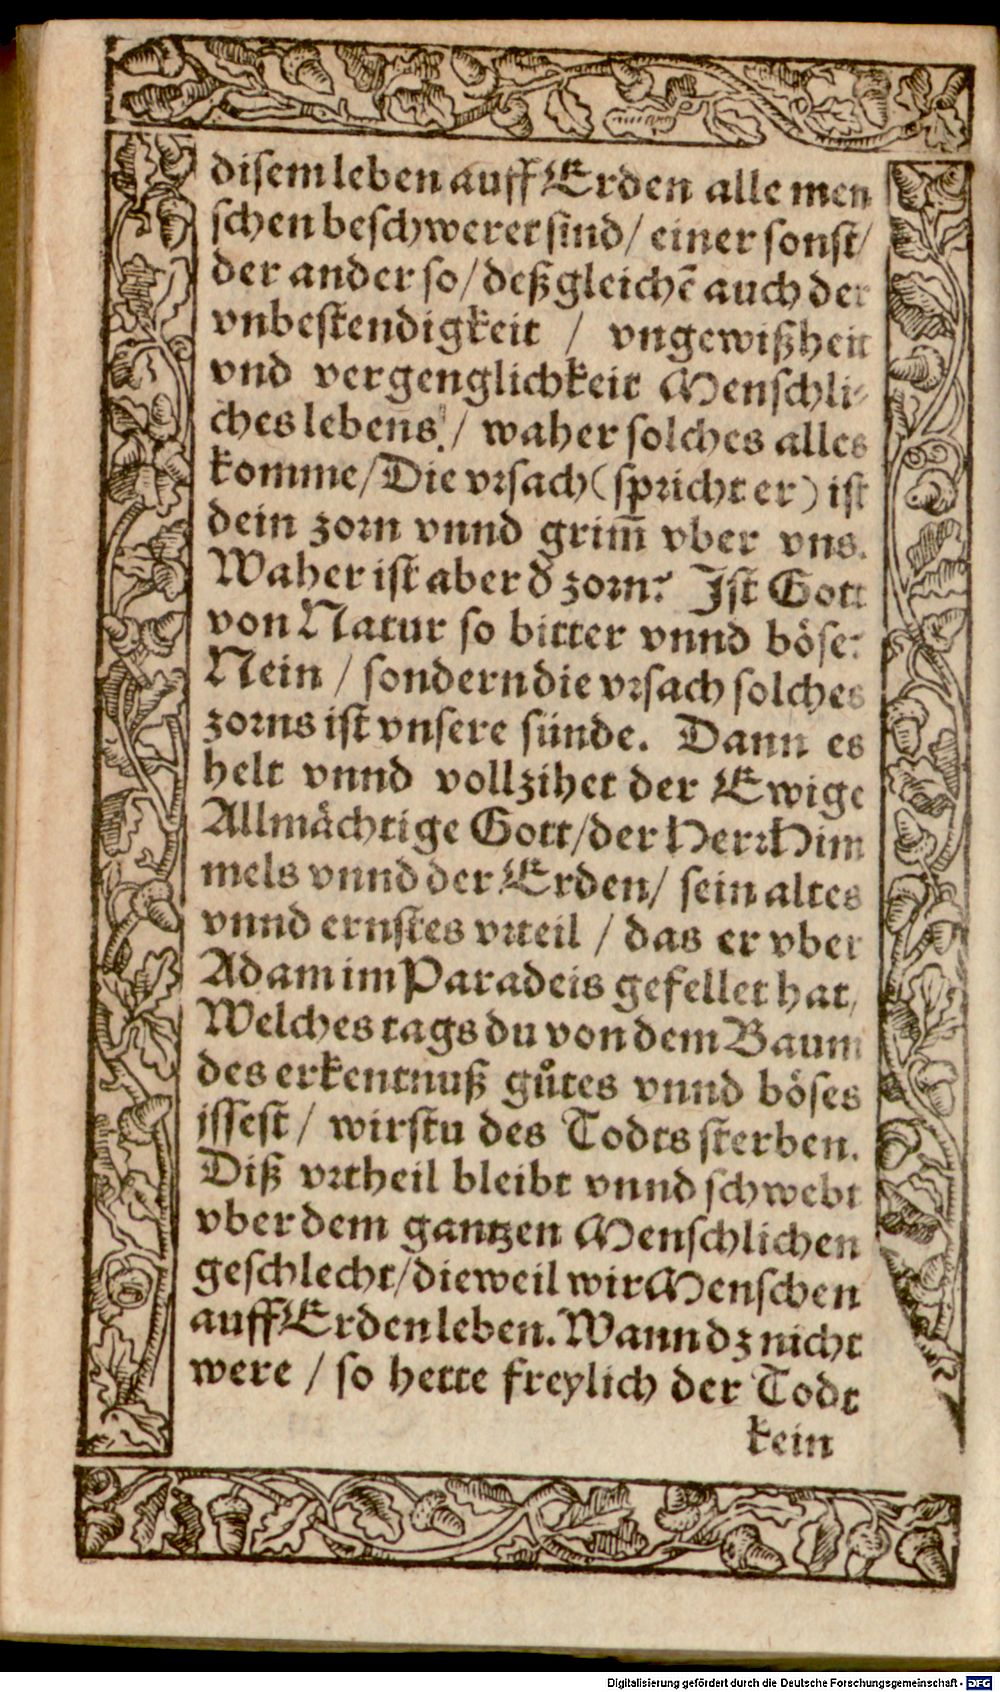 disem leben auff Erden alle men
schen beschweret sind/ einer sonst/
der ander so/ deßgleichē auch der
vnbestendigkeit / vngewißheit
vnd vergenglichkeit Menschli-
ches lebens / waher solches alles
komme/ Die vrsach (spricht er) ist
dein zorn vnnd grim̄ vber vns.
Waher ist aber d̕ zorn? Ist Gott
von Natur so bitter vnnd böse?
Nein / sondern die vrsach solches
zorns ist vnsere sünde. Dann es
helt vnnd vollzihet der Ewige
Allmächtige Gott/ der Herr Him
mels vnnd der Erden/ sein altes
vnnd ernstes vrteil / das er vber
Adam im Paradeis gefellet hat/
Welches tags du von dem Baum
des erkentnuß gůtes vnnd böses
issest / wirstu des Todts sterben.
Diß vrtheil bleibt vnnd schwebt
vber dem gantzen Menschlichen
geschlecht/ dieweil wir Menschen
auff Erden leben. Wann dz nicht
were / so hette freylich der Todt
kein
Digitalisierung gefördert durch die Deutsche Forschungsgemeinschaft - DFG